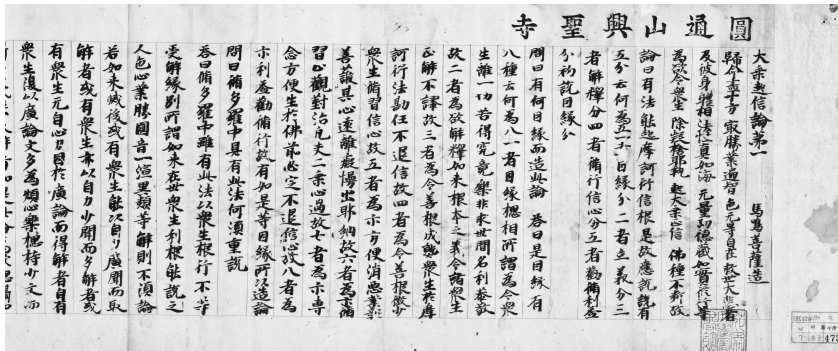 圓通山興聖寺
大乘起信論第一 馬鳴菩薩造
歸命盡十方 最勝業遍智 色无等自在 救世大悲者
及彼身體相 法性真如海 无量功德藏 如實修行等
為欲令衆生 除疑捨耶執 起大乘正信 佛種不斷故
論曰有法能起摩訶衍信根是故應說說有
五分云何為五一者因緣分二者立義分三
者解釋分四者脩行信心分五者勸脩利益
分初說因緣分
問曰有何因緣而造此論 答曰是因緣有
八種云何為八一者因緣惣相所謂為令衆
生離一切苦得究竟樂非求世間名利恭敬
故二者為欲解釋如來根本之義令諸衆生
正解不謬故三者為令善根成熟衆生於摩
訶衍法堪任不退信故四者為令善根微少
衆生脩習信心故五者為示方便消惡業障
善護其心遠離癡慢出耶網故六者為示脩
習止觀對治凡夫二乘心過故七者為示專
念方便生於佛前必定不退信心故八者為
示利益勸脩行故有如是等因緣所以造論
問曰脩多羅中具有此法何須重說
答曰脩多羅中雖有此法以衆生根行不等
受解緣別所謂如來在世衆生利根能說之
人色心業勝圓音一演異類等解則不須論
若如來滅後或有衆生能以自力廣聞而取
解者或有衆生亦以自力少聞而多解者或
有衆生无自心力因於廣論而得解者自有
衆生復以廣論文多為煩心樂惣持少文而